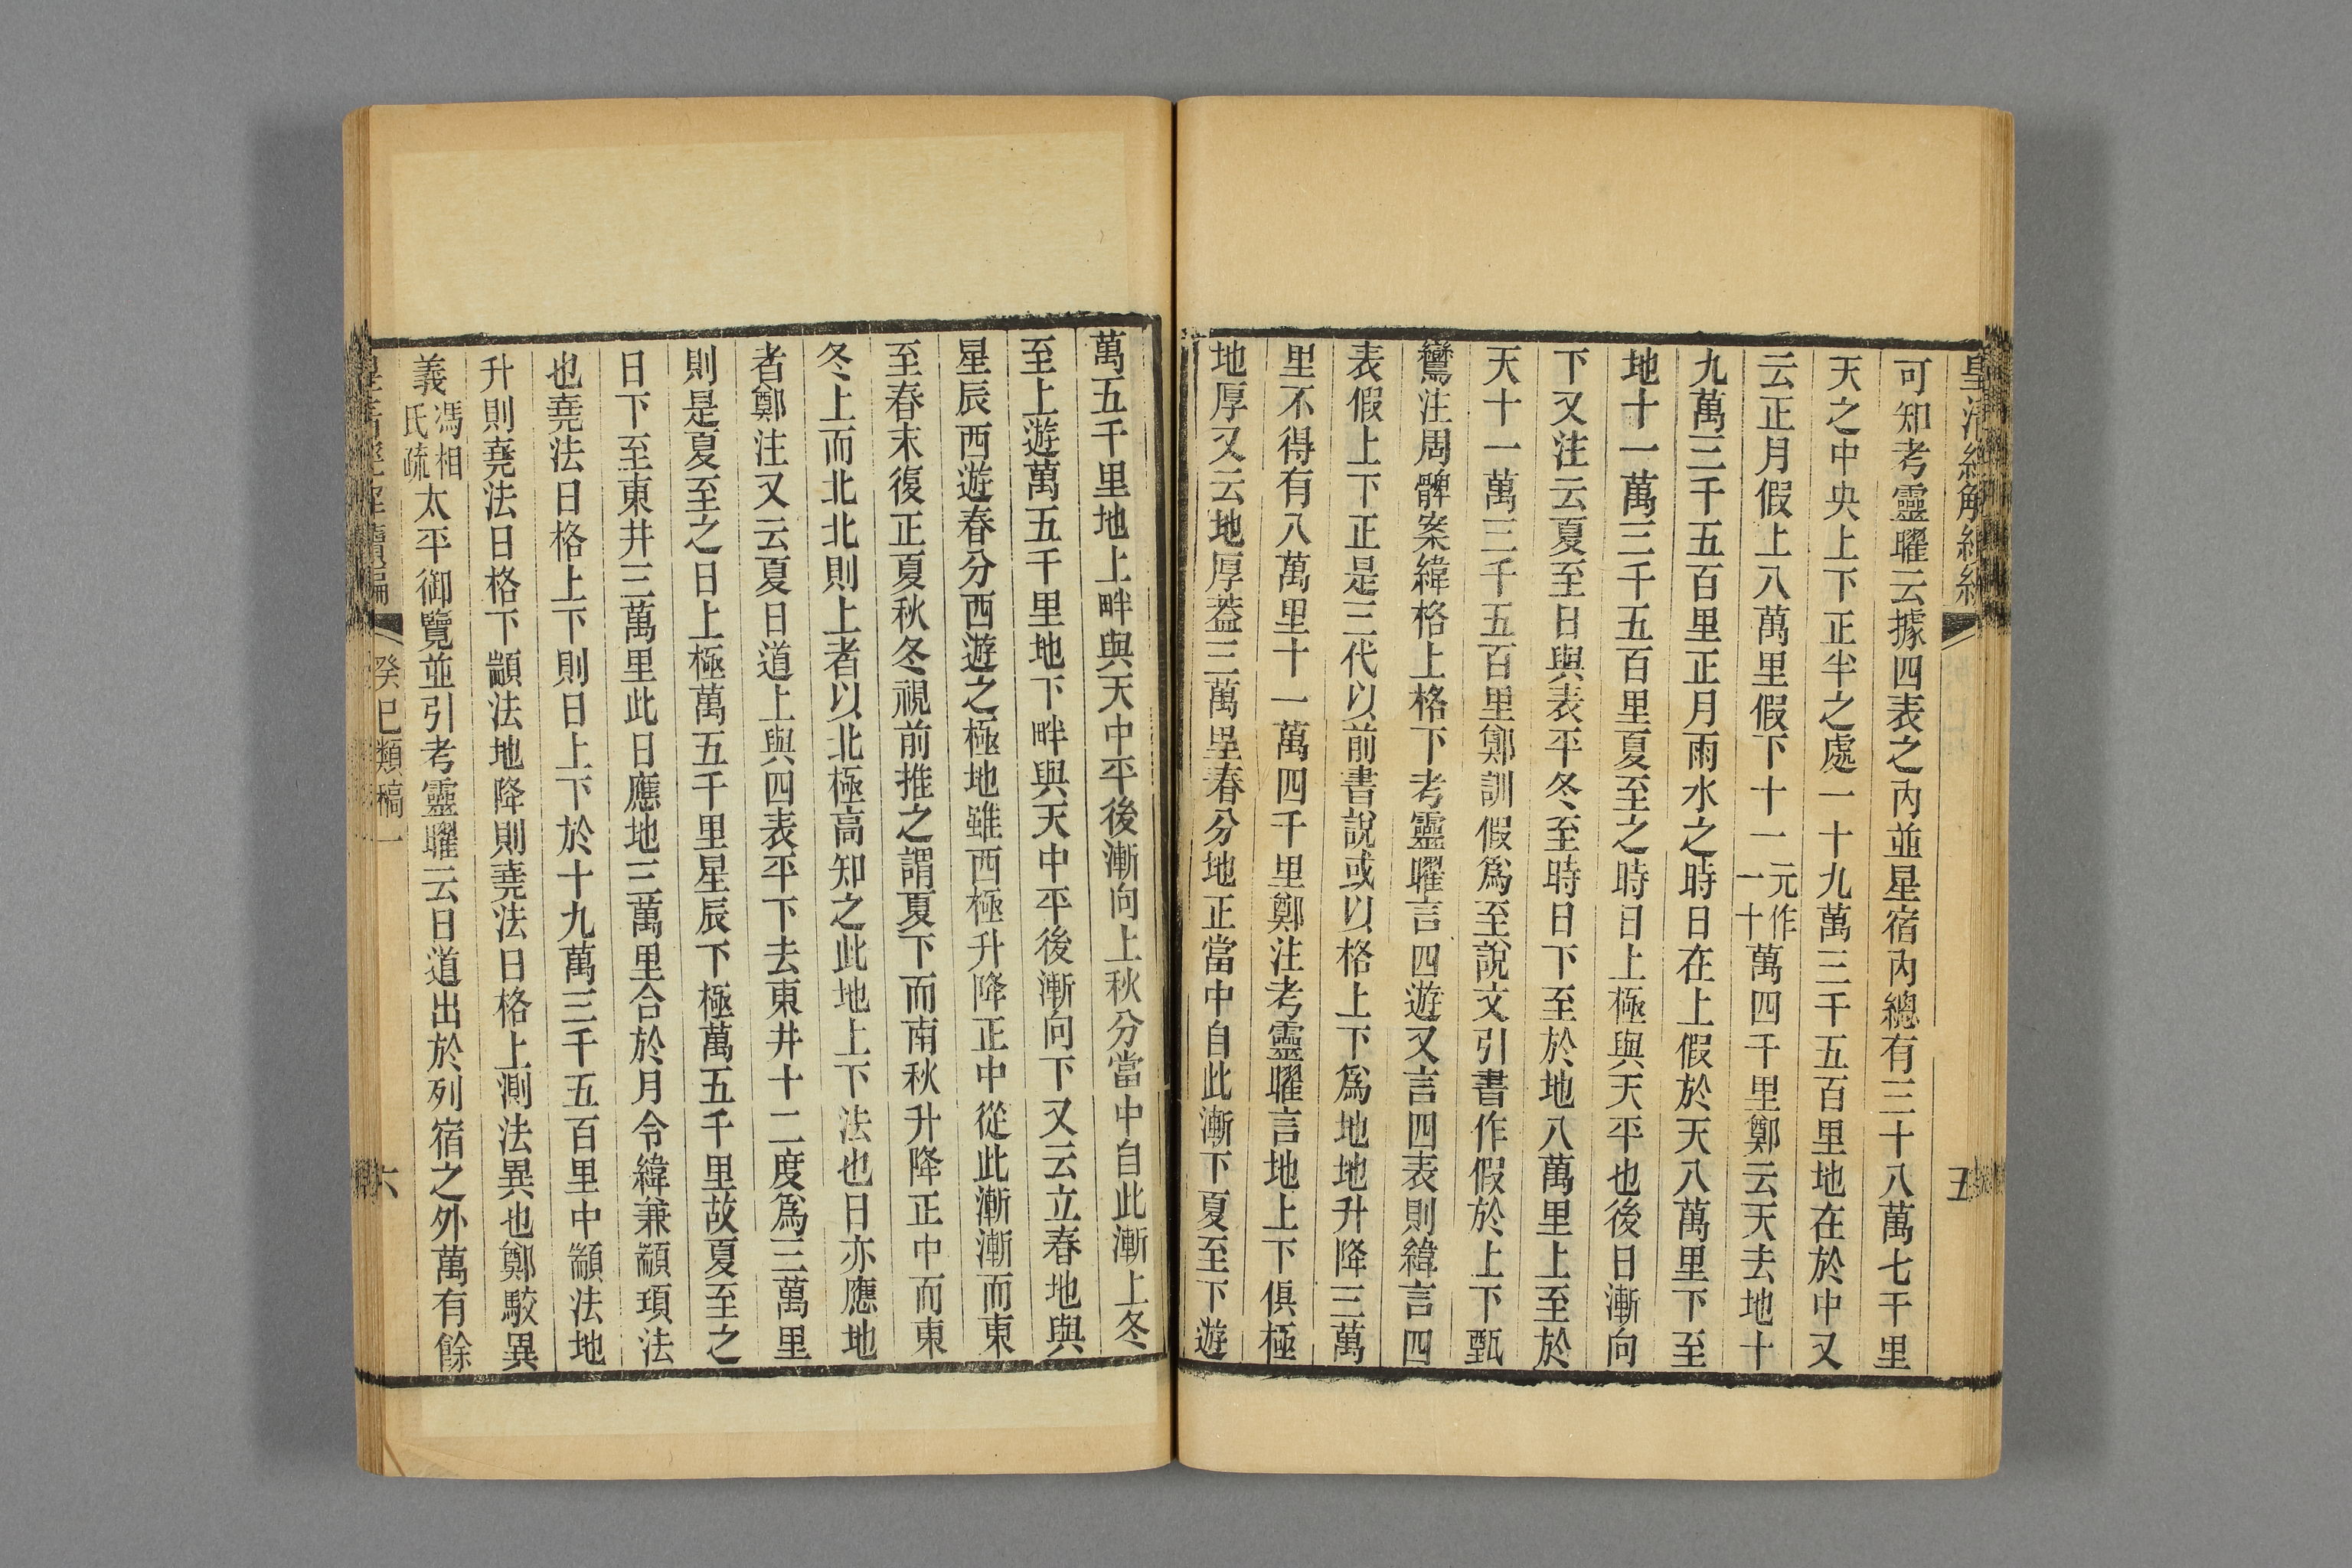 可知考靈曜云據四表之內並星宿內總有三十八萬七千里
天之中央上下正半之處一十九萬三千五百里地在於中又
云正月假上八萬里假下十一元作一十萬四千里鄭云天去地十
九萬三千五百里正月雨水之時日在上假於天八萬里下至
地十一萬三千五百里夏至之時日上極與天平也後日漸向
下又注云夏至日與表平冬至時日下至於地八萬里上至於
天十一萬三千五百里鄭訓假爲至說文引書作假於上下甄
鸞注周髀案緯格上格下考靈曜言四遊又言四表則緯言四
表假上下正是三代以前書說或以格上下爲地地升降三萬
里不得有八萬里十一萬四千里鄭注考靈曜言地上下俱極
地厚又云地厚蓋三萬里春分地正當中自此漸下夏至下遊
五
萬五千里地上畔與天中平後漸向上秋分當中自此漸上冬
至上遊萬五千里地下畔與天中平後漸向下又云立春地與
星辰西遊春分西遊之極地雖西極升降正中從此漸漸而東
至春末復正夏秋冬視前推之謂夏下而南秋升降正中而東
冬上而北北則上者以北極高知之此地上下法也日亦應地
者鄭注又云夏日道上與四表平下去東井十二度爲三萬里
則是夏至之日上極萬五千里星辰下極萬五千里故夏至之
日下至東井三萬里此日應地三萬里合於月令緯兼顓頊法
也堯法日格上下則日上下於十九萬三千五百里中顓法地
升則堯法日格下顓法地降則堯法日格上測法異也鄭駮異
義馮相氏疏太平御覽並引考靈曜云日道出於列宿之外萬有餘
癸巳類稿一
六